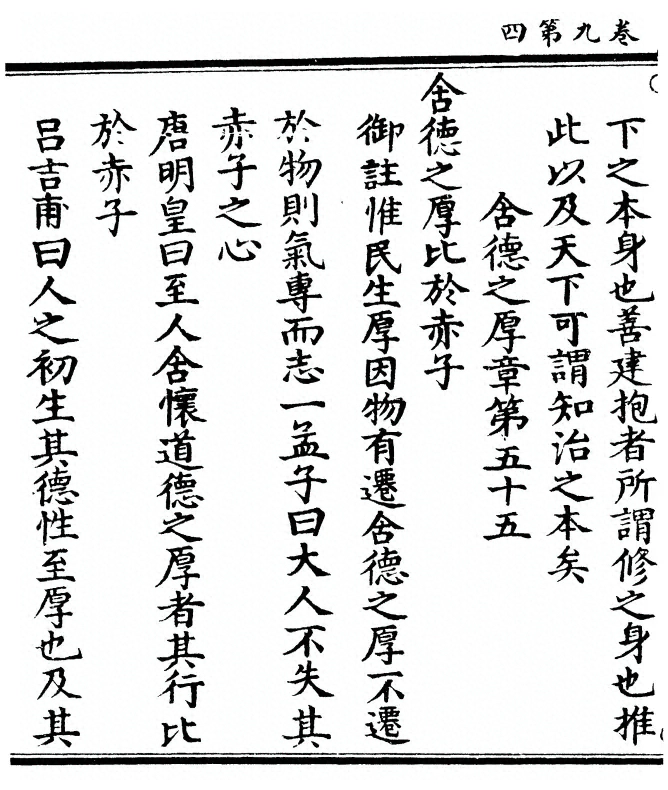 卷九第四
下之本身也善建抱者所謂修之身也推
此以及天下可謂知治之本矣
含德之厚章第五十五
含德之厚比於赤子
御註惟民生厚因物有遷含德之厚不遷
於物則氣專而志一孟子曰大人不失其
赤子之心
唐明皇曰至人含懷道德之厚者其行比
於赤子
呂吉甫曰人之初生其德性至厚也及其